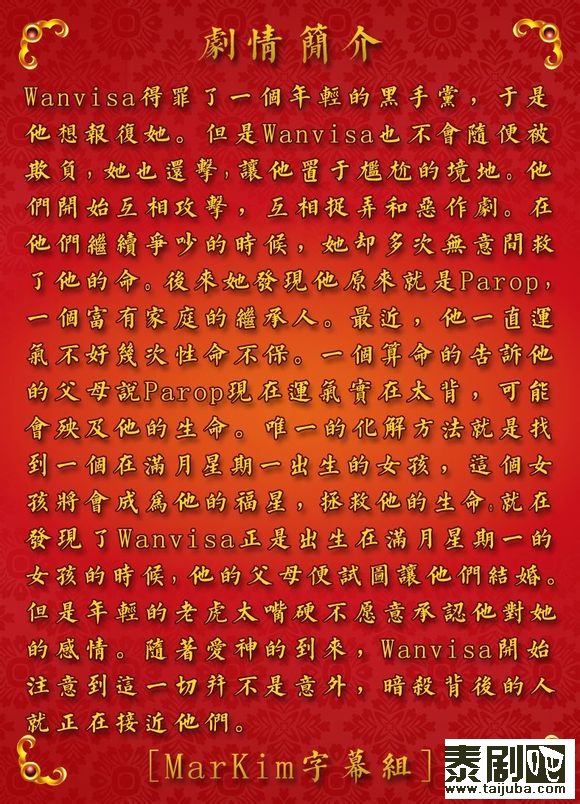 劇情簡介
Wanvisa得罪了一個年輕的黑手黨，于是
他想報復她。但是Wanvisa也不會隨便被
欺負,她也還擊,讓他置于尷尬的境地。他
們開始互相攻擊，互相捉弄和惡作劇。在
他們繼續爭吵的時候，她却多次無意間救
了他的命。後來她發現他原來就是Parop，
一個富有家庭的繼承人。最近，他一直運
氣不好幾次性命不保。一個算命的告訴他
的父母說Parop現在運氣實在太背，可能
會殃及他的生命。唯一的化解方法就是找
到一個在滿月星期一出生的女孩，這個女
孩將會成爲他的福星，拯救他的生命.就在
發現了Wanvisa正是出生在滿月星期一的
女孩的時候,他的父母便試圖讓他們結婚。
但是年輕的老虎太嘴硬不愿意承認他對她
的感情。隨著愛神的到來，Wanvisa開始
注意到這一切幷不是意外，暗殺背後的人
就正在接近他們。
[MarKim字幕組]
泰剧吧
www.taijuba.com